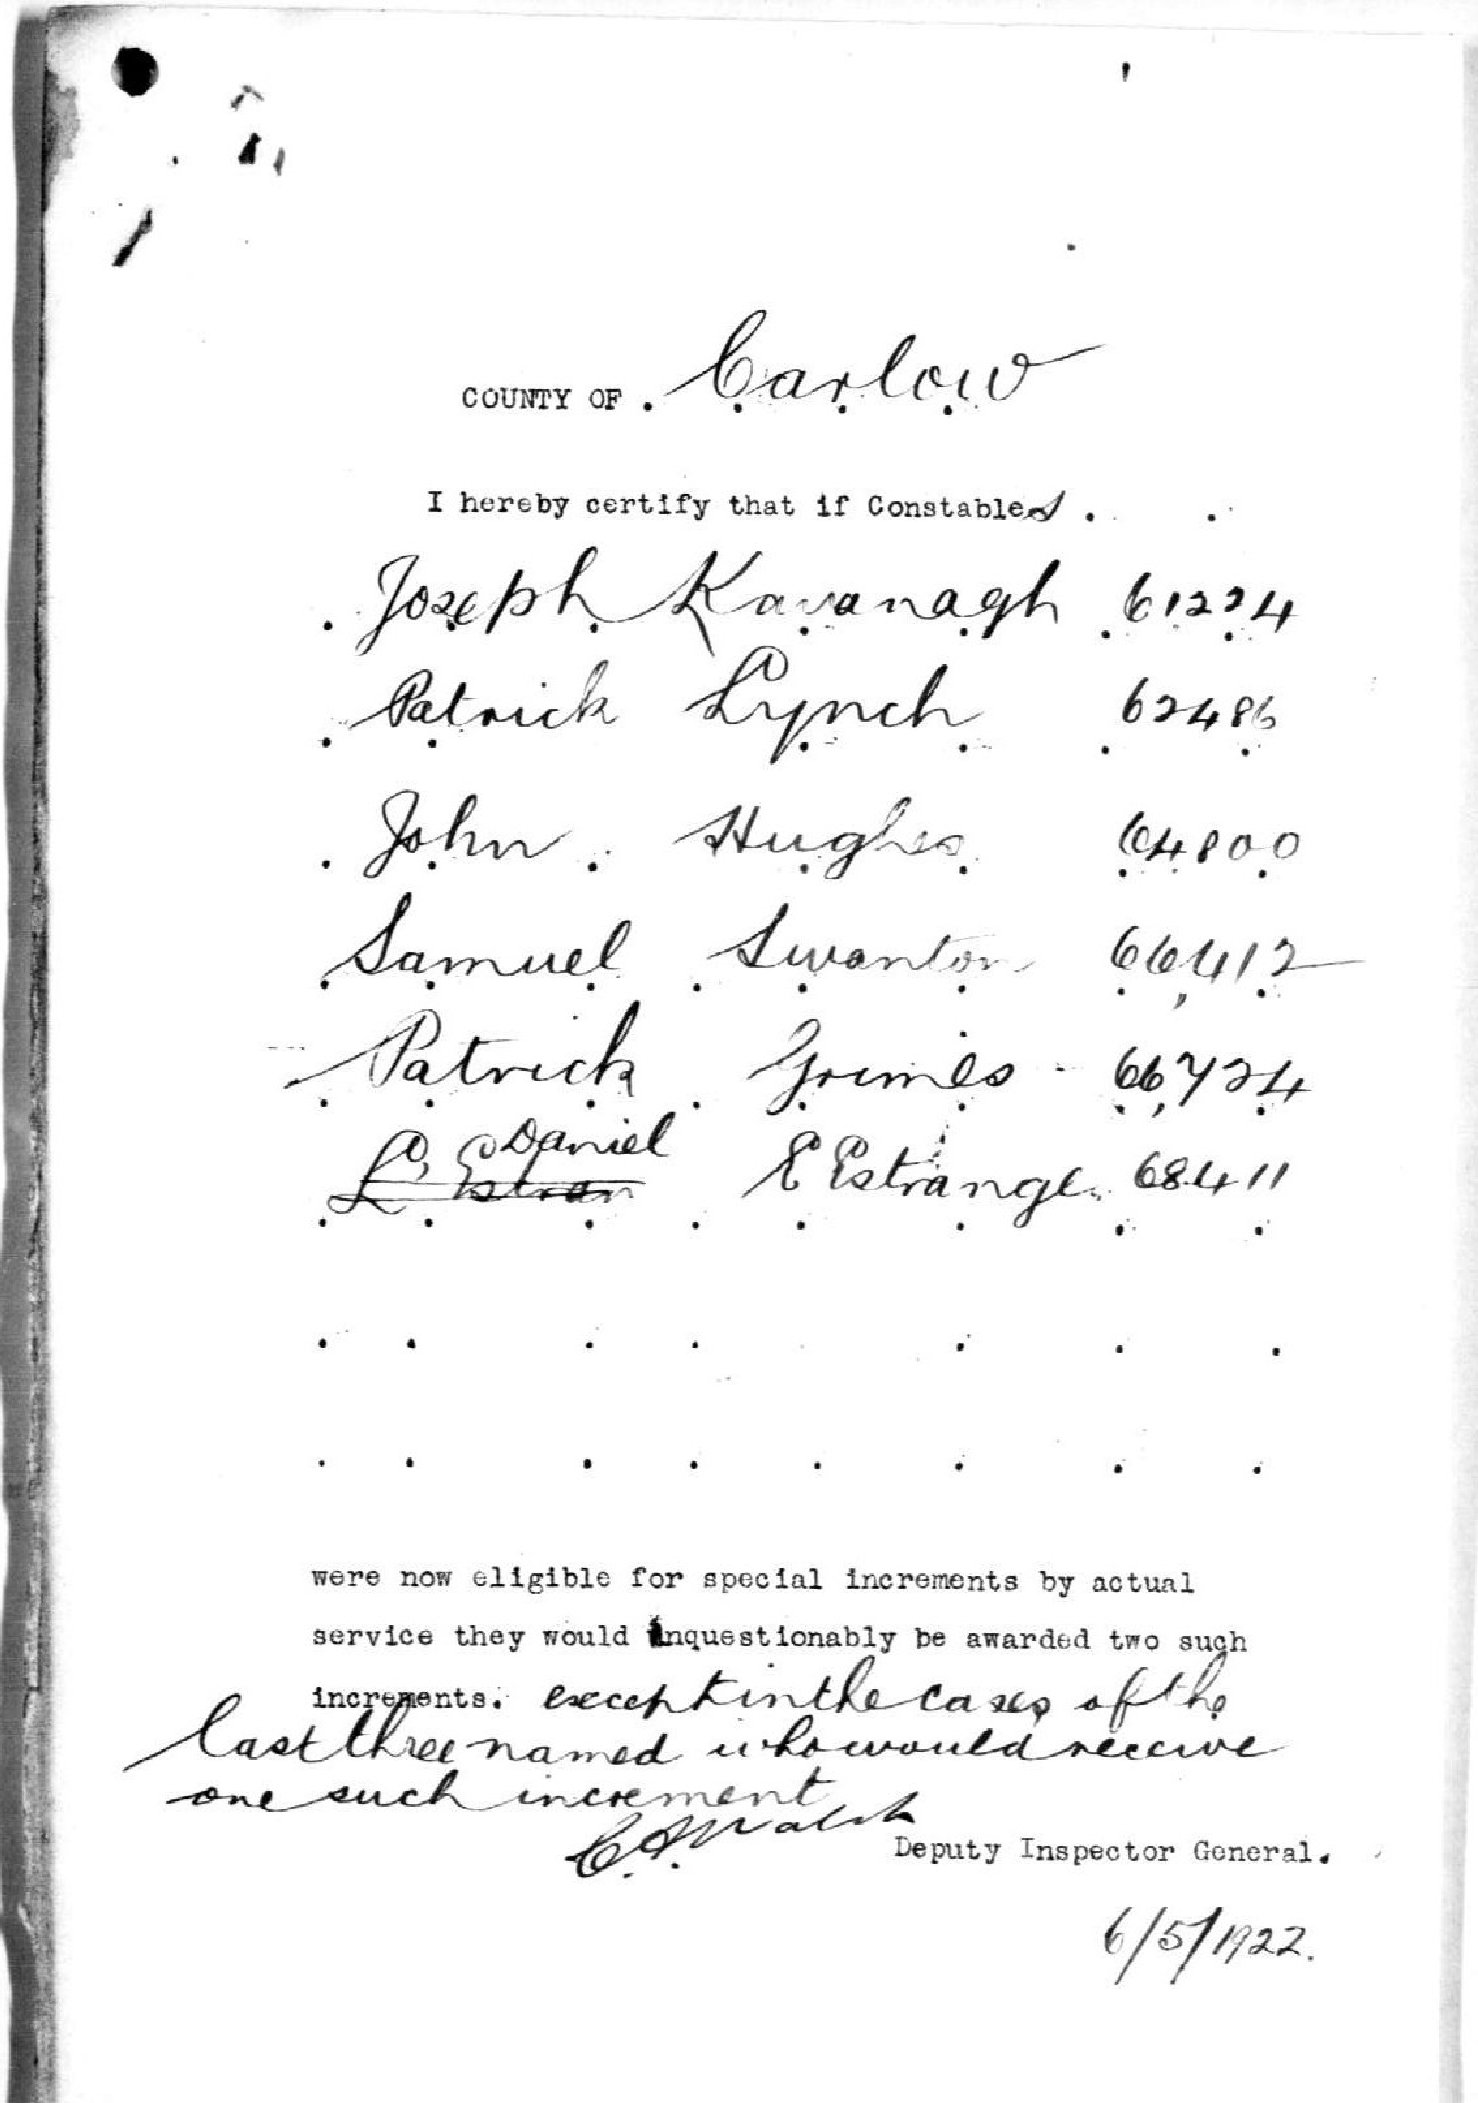 COUNTY OF . Carlow
I hereby certify that if Constables . .
Joseph Kavanagh 61224
Patrick Lynch 62486
John Hughes 64800
Samuel Swanton 66,412
Patrick Grimes 66,724
Daniel
L, Estran E Estrange 68411
were now eligible for special increments by actual
service they would unquestionably be awarded two such
increments. except in the cases of the
last three named who would receive
one such increment
C.A. Walsh
Deputy Inspector General.
6/5/1922.